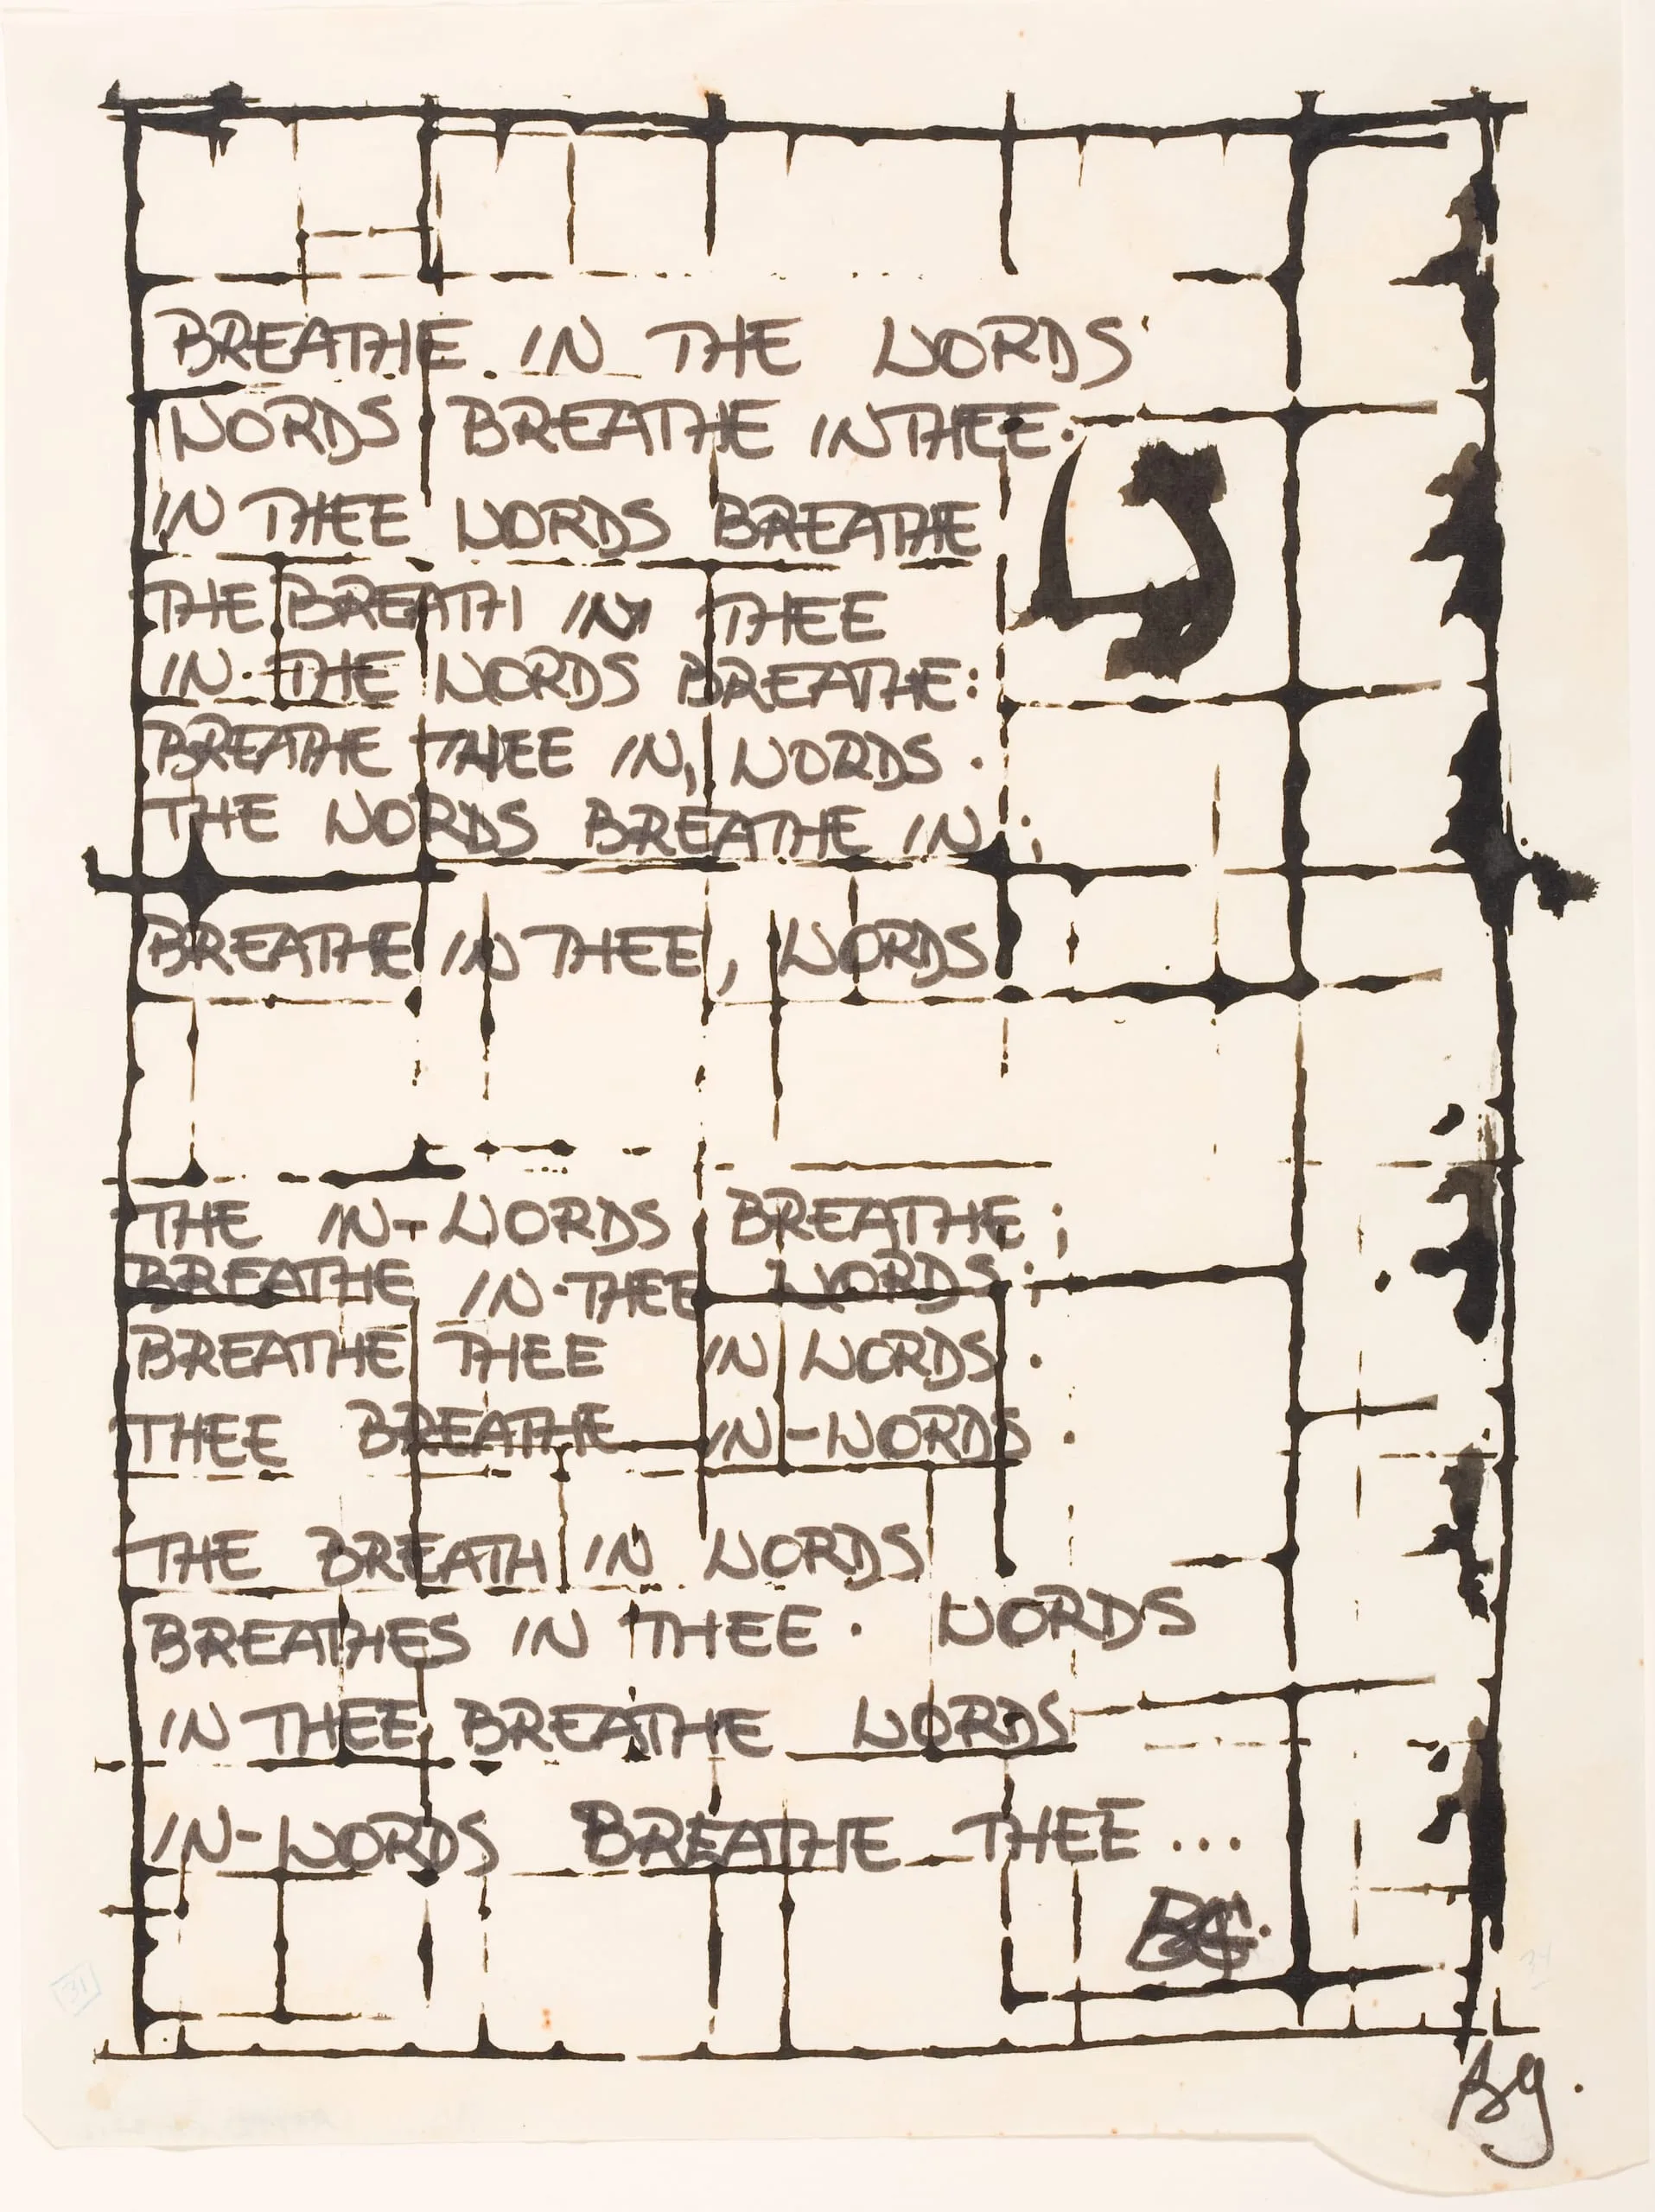 BREATHE IN THE WORDS
WORDS BREATHE IN THEE.
IN THEE WORDS BREATHE
THE BREATH IN THEE
IN THE WORDS BREATHE:
BREATHE THEE IN, WORDS.
THE WORDS BREATHE IN;
BREATHE IN THEE, WORDS
THE IN-WORDS BREATHE;
BREATHE IN THEE WORDS;
BREATHE THEE IN WORDS.
THEE BREATHE IN-WORDS.
THE BREATH IN WORDS
BREATHES IN THEE. WORDS
IN THEE BREATHE WORDS
IN-WORDS BREATHE THEE...
BG.
31
34
Bg.